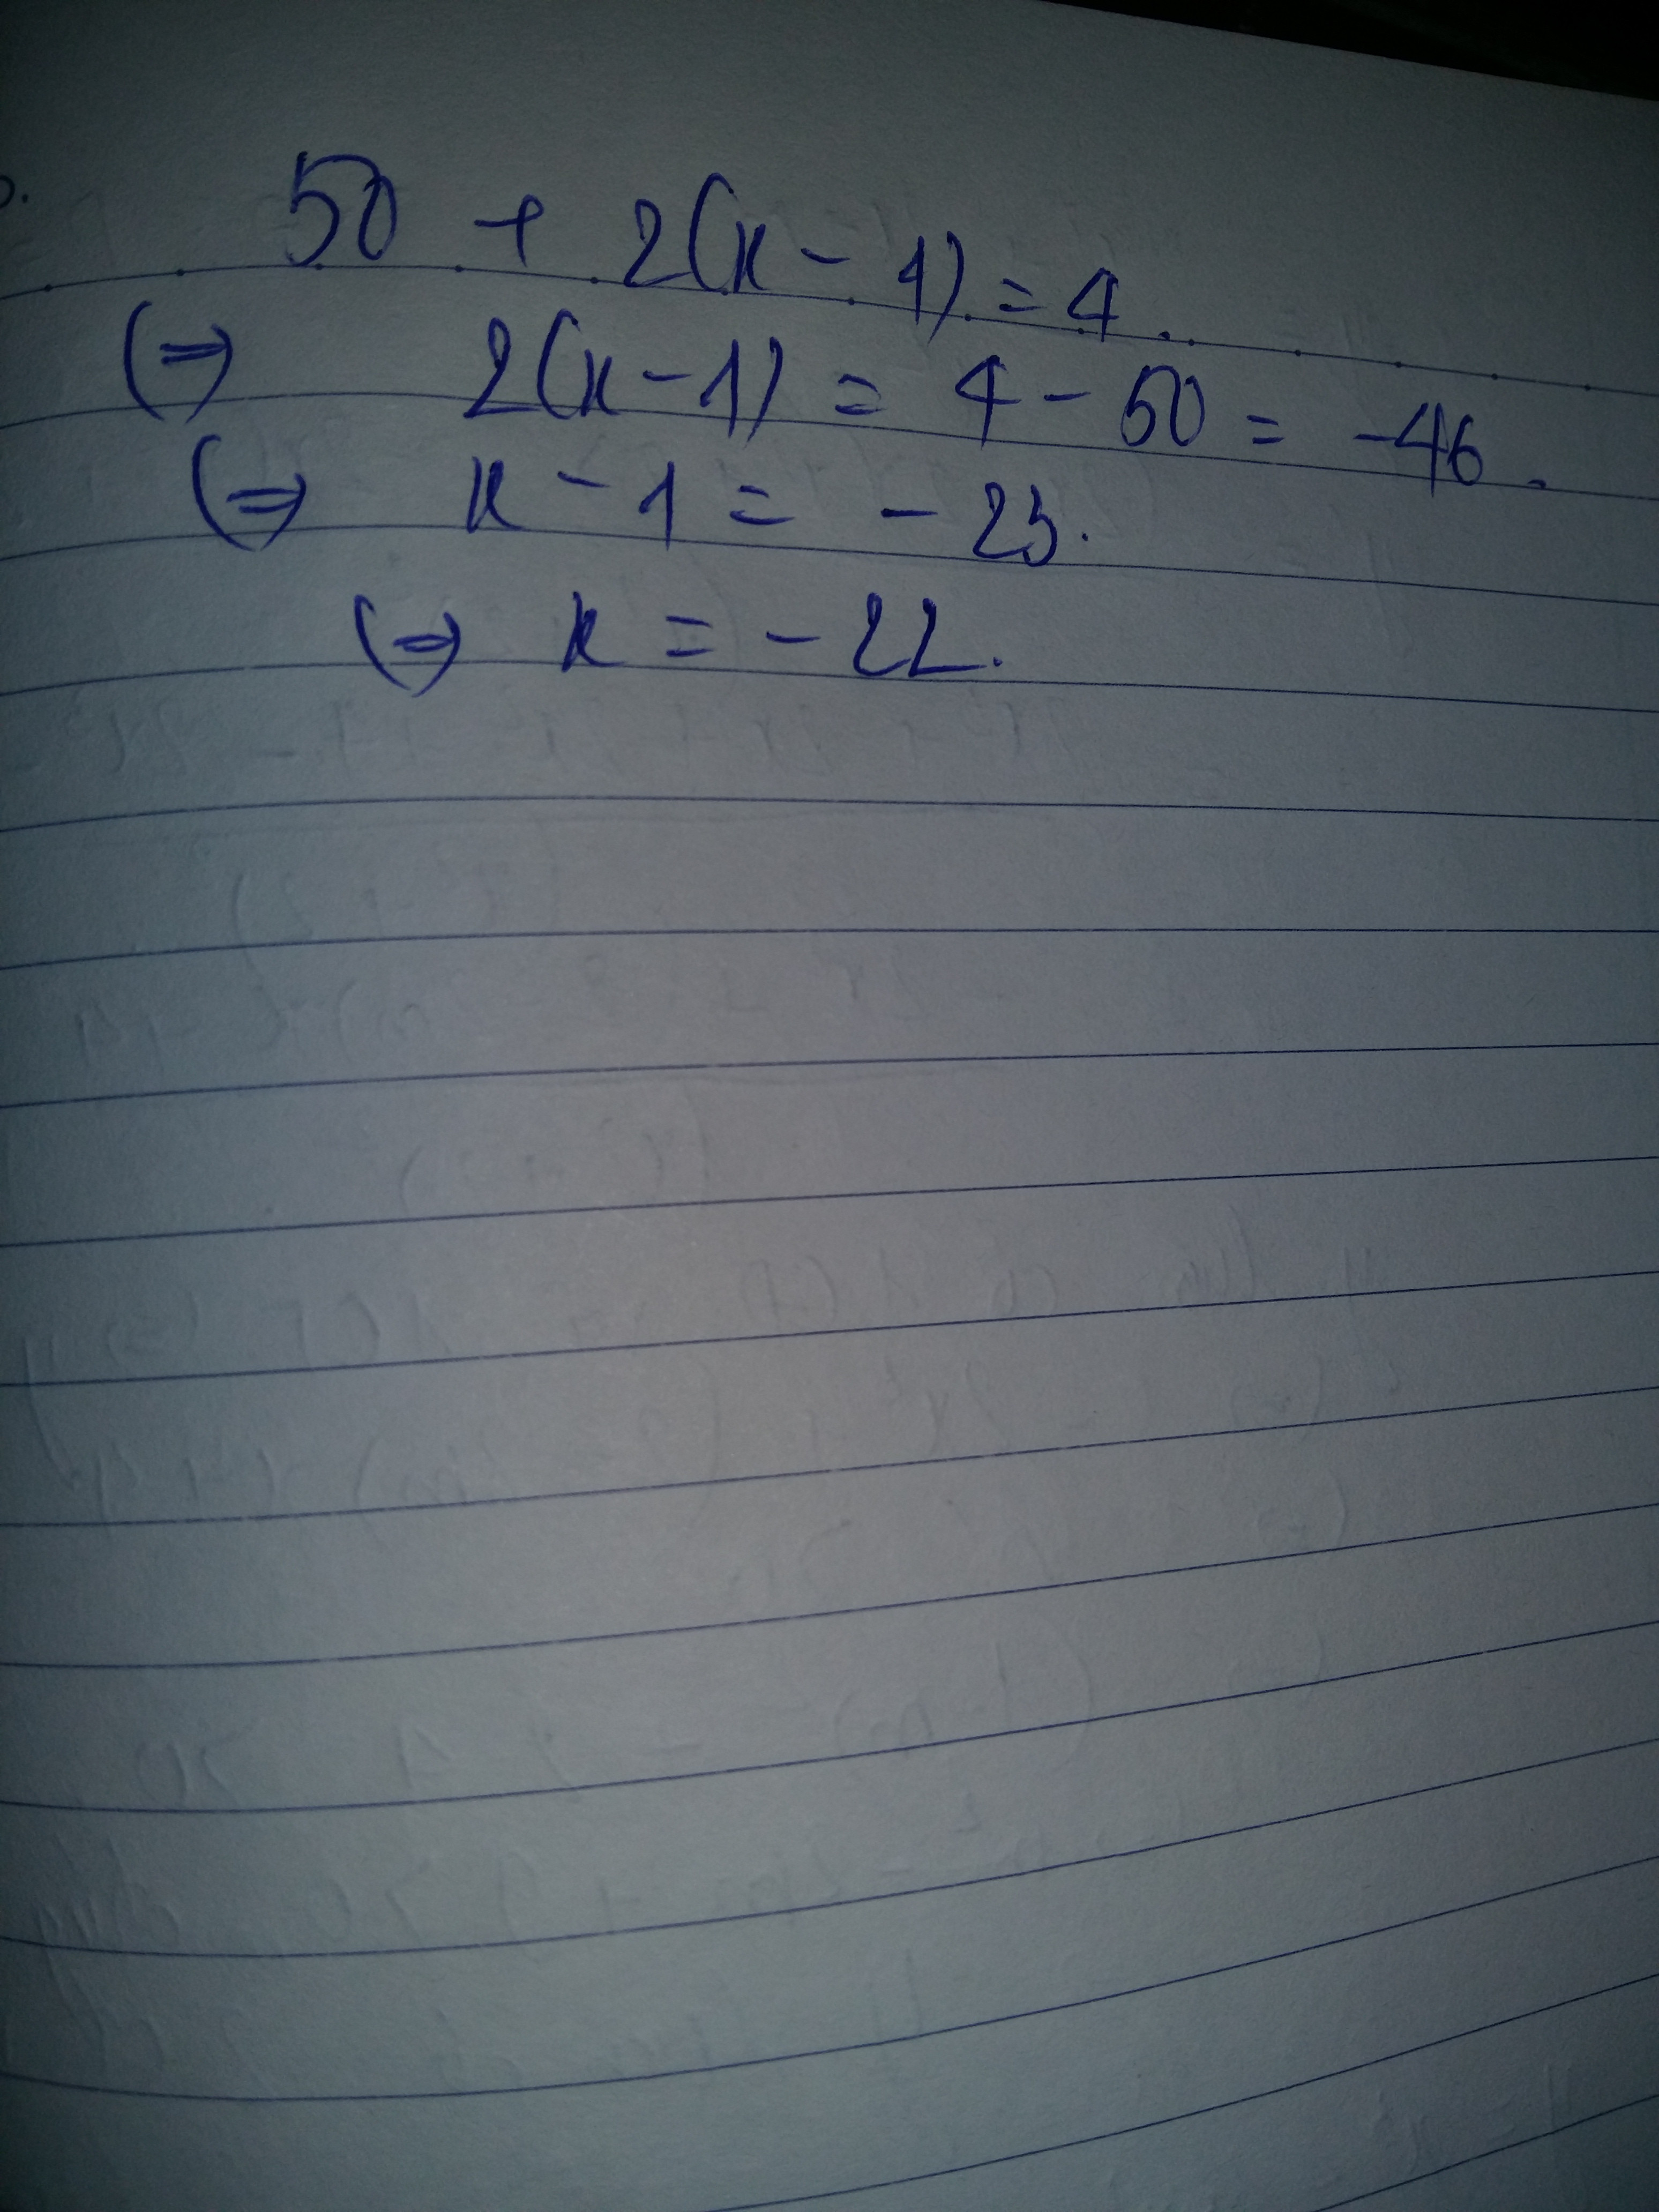 50 + 2(x - 1) = 4.
(=) 2(x - 1) = 4 - 50 = -46.
(=) x - 1 = - 23.
(=) x = - 22.